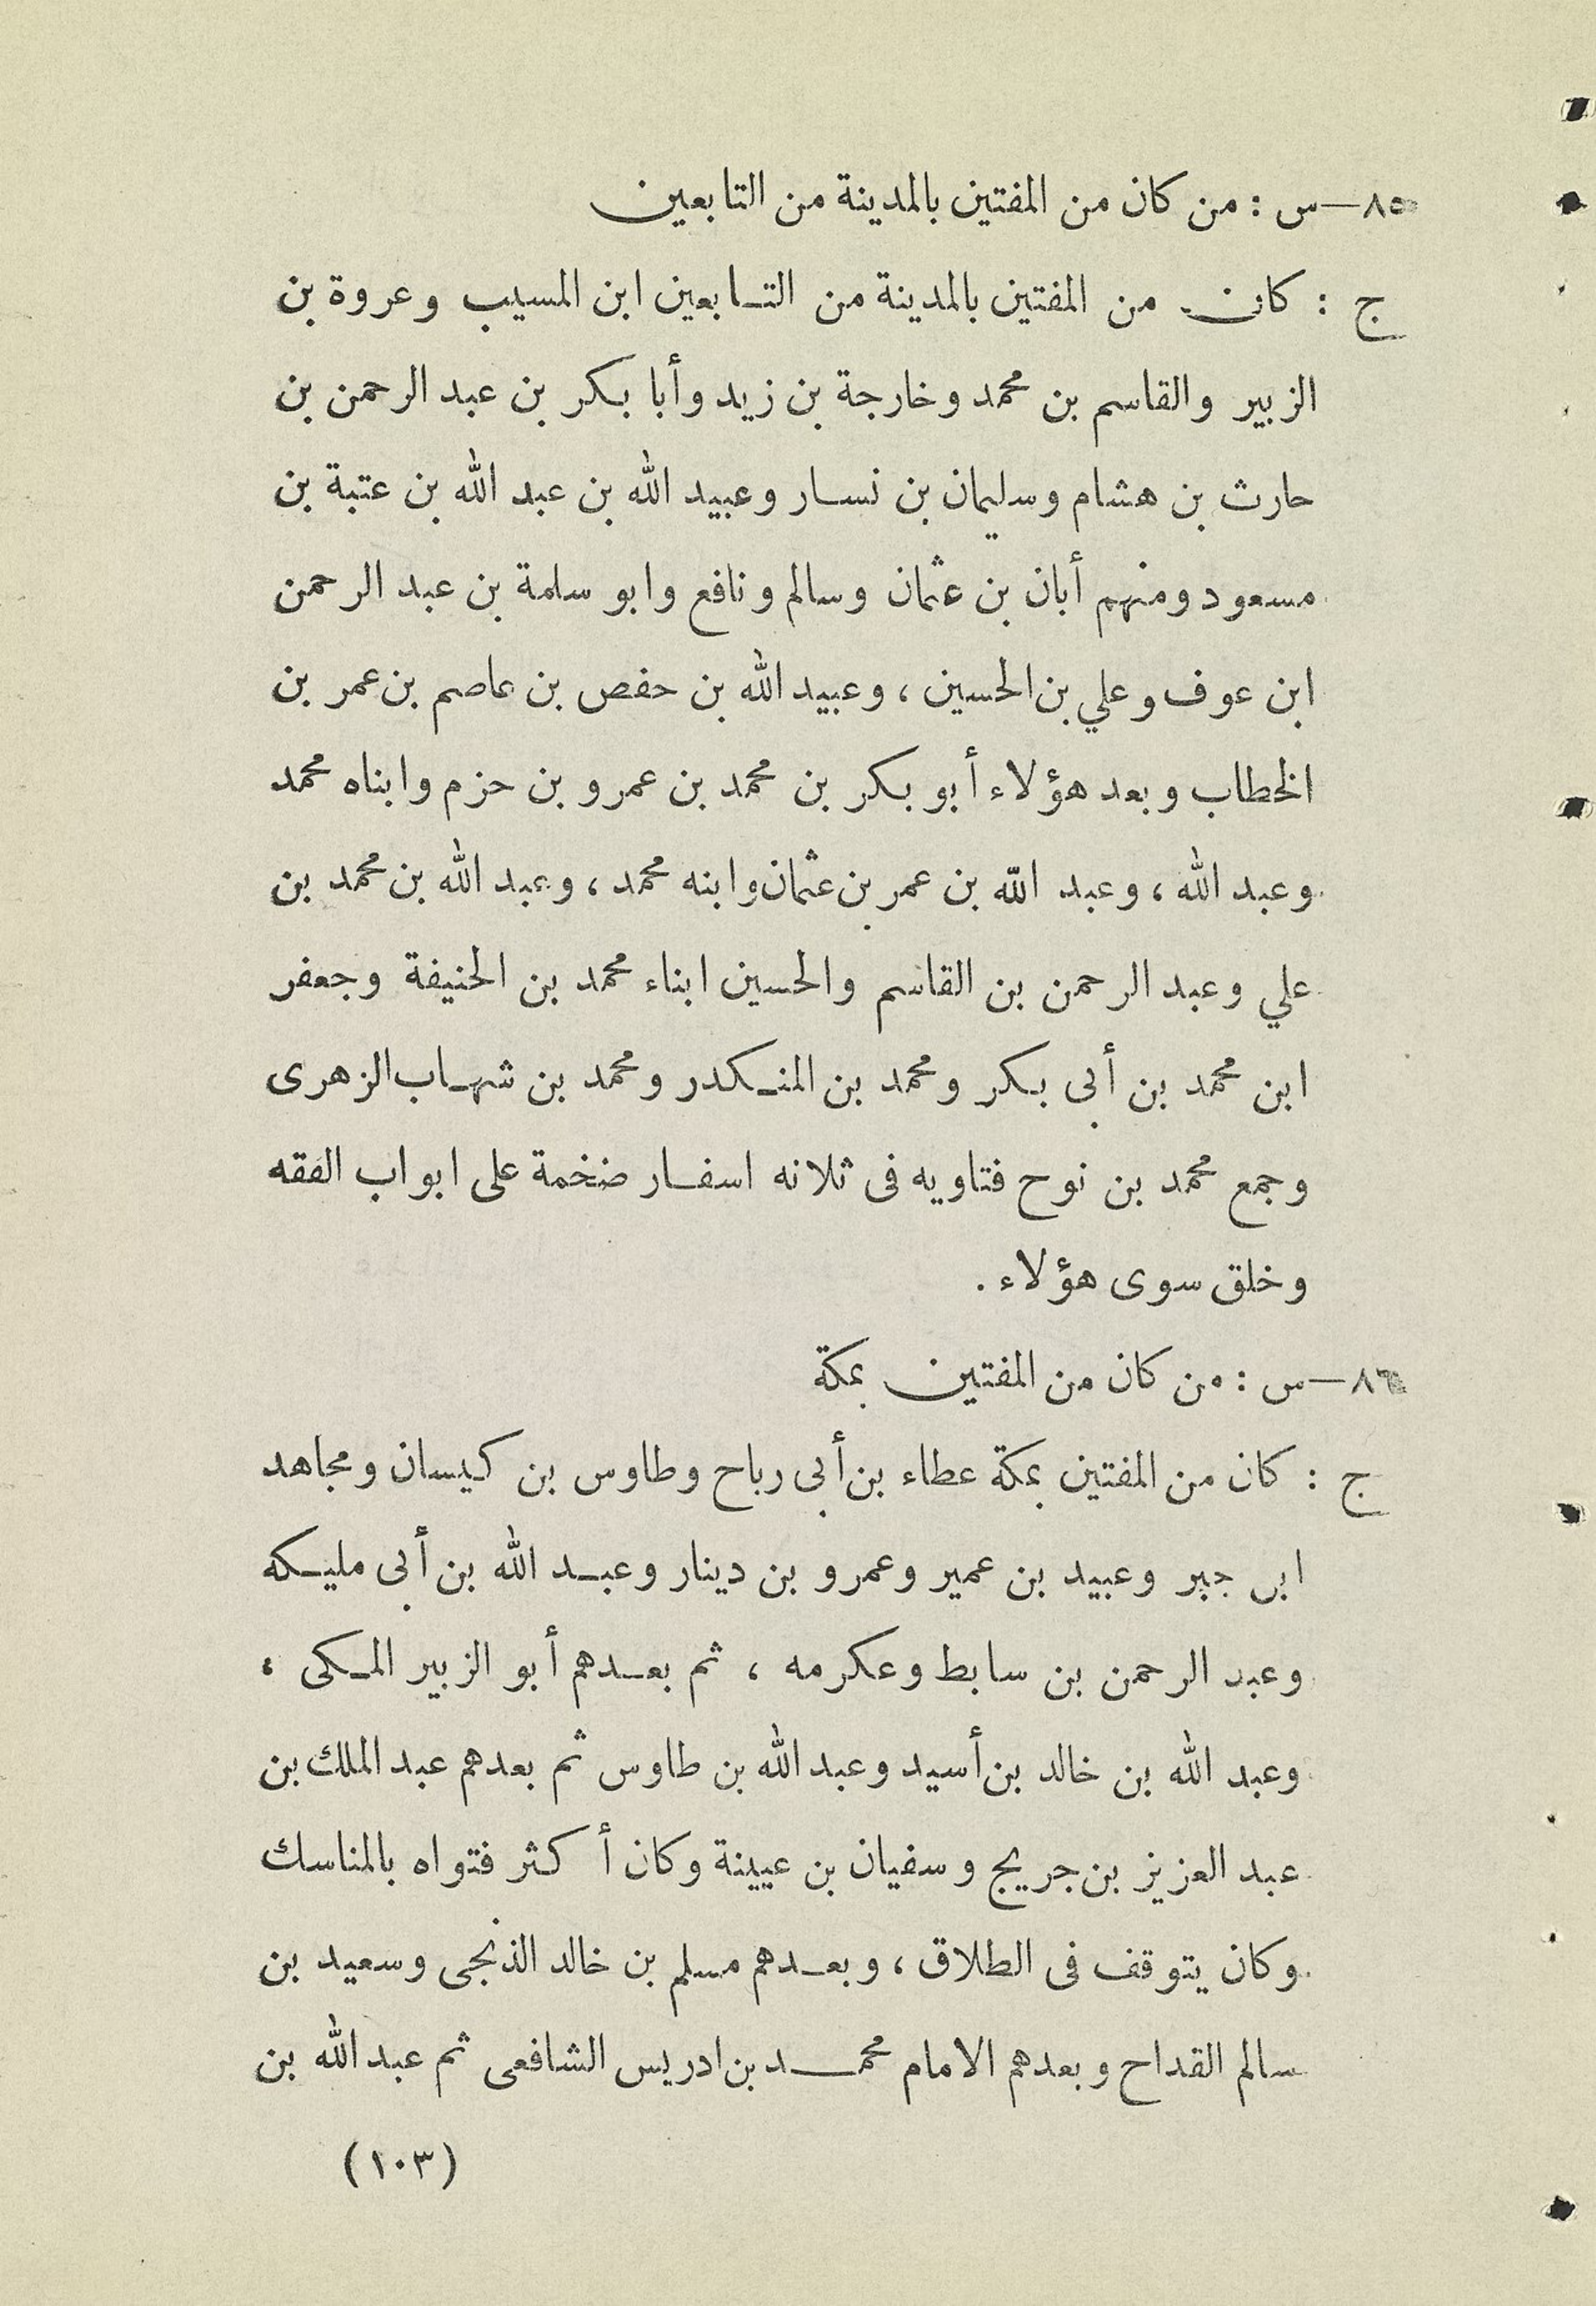 ٨٥—س : من كان من المفتين بالمدينة من التابعين
ج : كان من المفتين بالمدينة من التابعين ابن المسيب وعروة بن
الزبير والقاسم بن محمد وخارجة بن زيد وأبا بكر بن عبد الرحمن بن
حارث بن هشام وسليمان بن نسار وعبيد الله بن عبد الله بن عتبة بن
مسعود ومنهم أبان بن عثمان وسالم ونافع وابو سلمة بن عبد الرحمن
ابن عوف وعلي بن الحسين ، وعبيد الله بن حفص بن عاصم بن عمر بن
الخطاب وبعد هؤلاء أبو بكر بن محمد بن عمرو بن حزم وابناه محمد
وعبد الله ، وعبد الله بن عمر بن عثمان وابنه محمد ، وعبد الله بن محمد بن
علي وعبد الرحمن بن القاسم والحسين ابناء محمد بن الحنيفة وجعفر
ابن محمد بن أبى بكر ومحمد بن المنكدر ومحمد بن شهاب الزهرى
وجمع محمد بن نوح فتاويه فى ثلانه اسفار ضخمة على ابواب الفقه
وخلق سوى هؤلاء .
٨٦—س : من كان من المفتين بمكة
ج : كان من المفتين بمكة عطاء بن أبى رباح وطاوس بن كيسان ومجاهد
ابن جبر وعبيد بن عمير وعمرو بن دينار وعبد الله بن أبى مليكه
وعبد الرحمن بن سابط وعكرمه ، ثم بعدهم أبو الزبير المكى ،
وعبد الله بن خالد بن أسيد وعبد الله بن طاوس ثم بعدهم عبد الملك بن
عبد العزيز بن جريج وسفيان بن عيينة وكان أكثر فتواه بالمناسك
وكان يتوقف فى الطلاق ، وبعدهم مسلم بن خالد الذنجى وسعيد بن
سالم القداح وبعدهم الامام محمد بن ادريس الشافعى ثم عبد الله بن
(١٠٣)